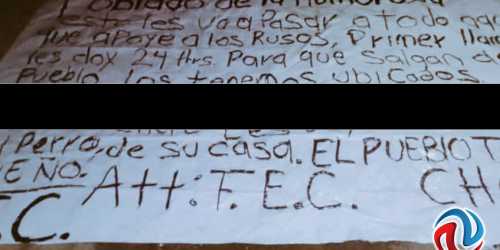 de la
esto les va a Pasar a todo
que apoye a los Rusos, Primer
les doy 24 Hrs. Para que Salgan
Pueblo los tenemos ubicados
Perro, de su casa. EL PUEBLO T
EÑO. Att: F. E.C. CH
C.